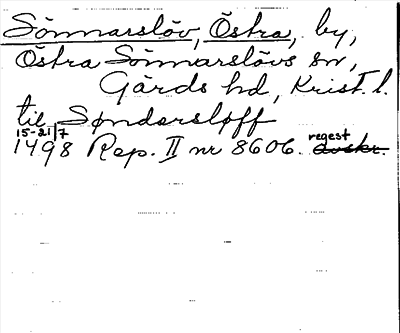 Sönnarslöv, Östra, by,
Östra Sönnarslövs sn,
Gärds hd, Krist. l.
til Søndersløff
15-21/7
1498 Rep. II nr 8606. regest Avskr.